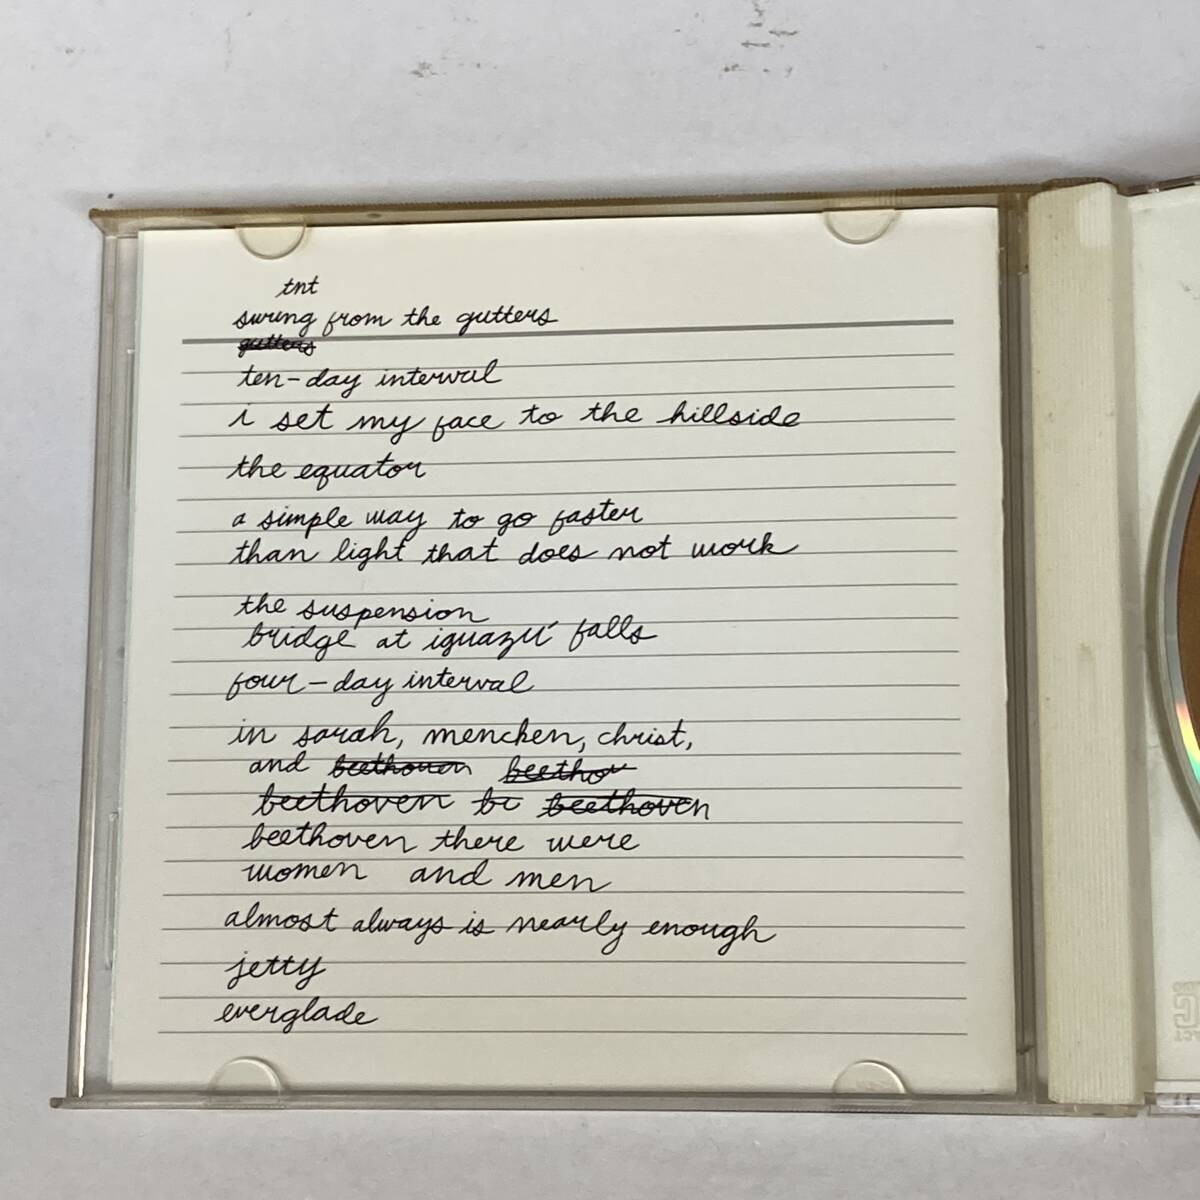 tnt
swung from the gutters
gutters
ten-day interval
i set my face to the hillside
the equator
a simple way to go faster
than light that does not work
the suspension
bridge at iguazú falls
four-day interval
in sarah, mencken, christ,
and beethoven beethov
beethoven be beethoven
beethoven there were
women and men
almost always is nearly enough
jetty
everglade